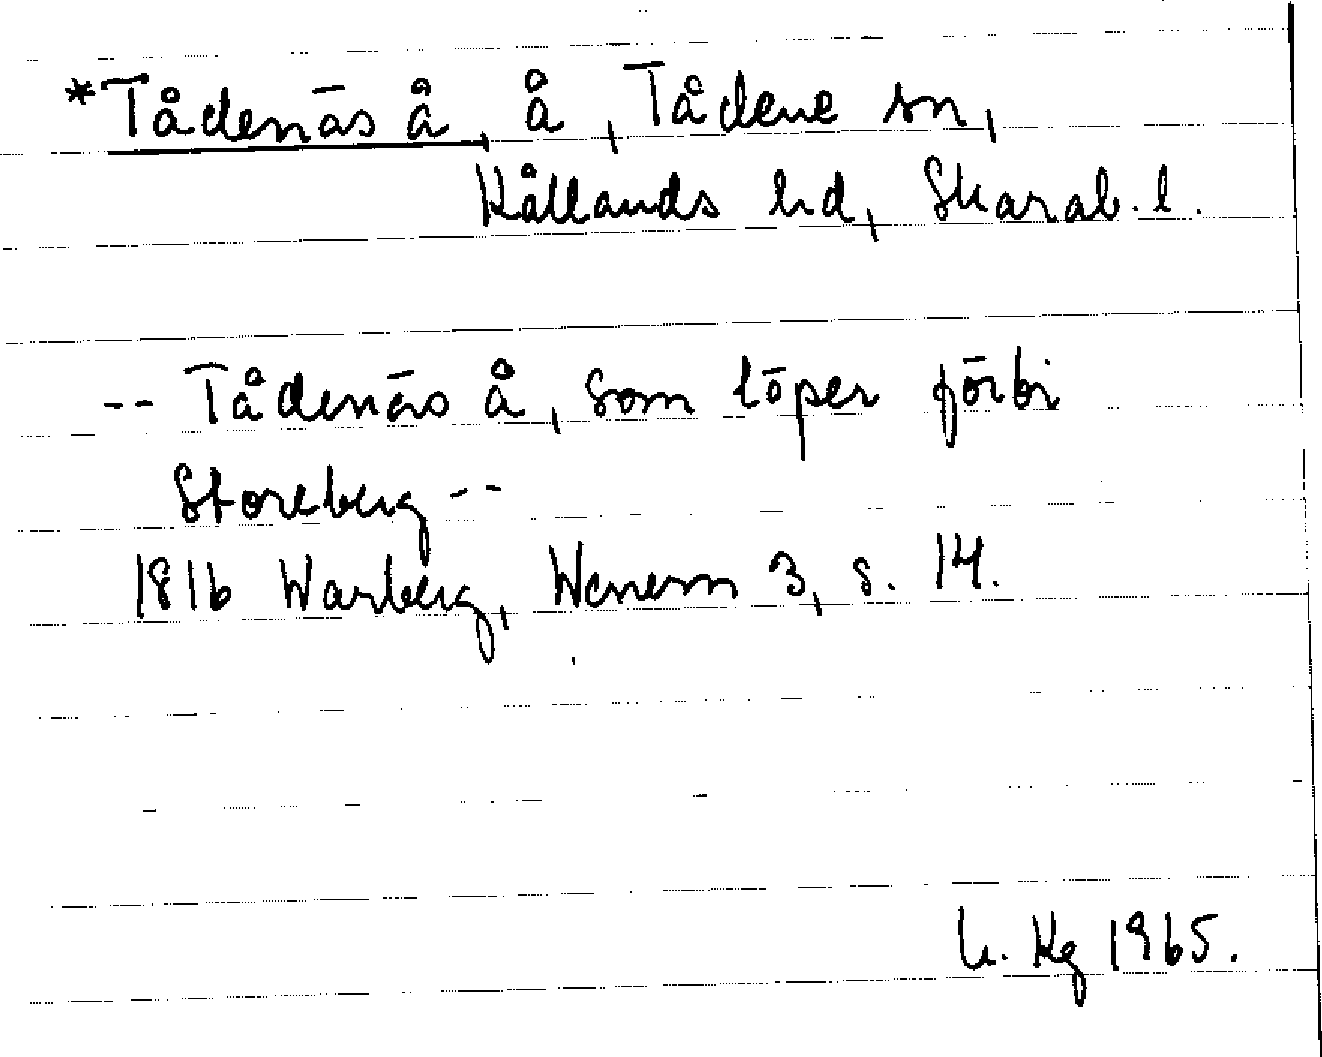 *Tådenäs å, å, Tådene sn,
Kållands hd, Skarab. l.
-- Tådenäs å, som löper förbi
Storeberg --
1816 Warberg, Wenern 3, s. 14.
Kg 1965.